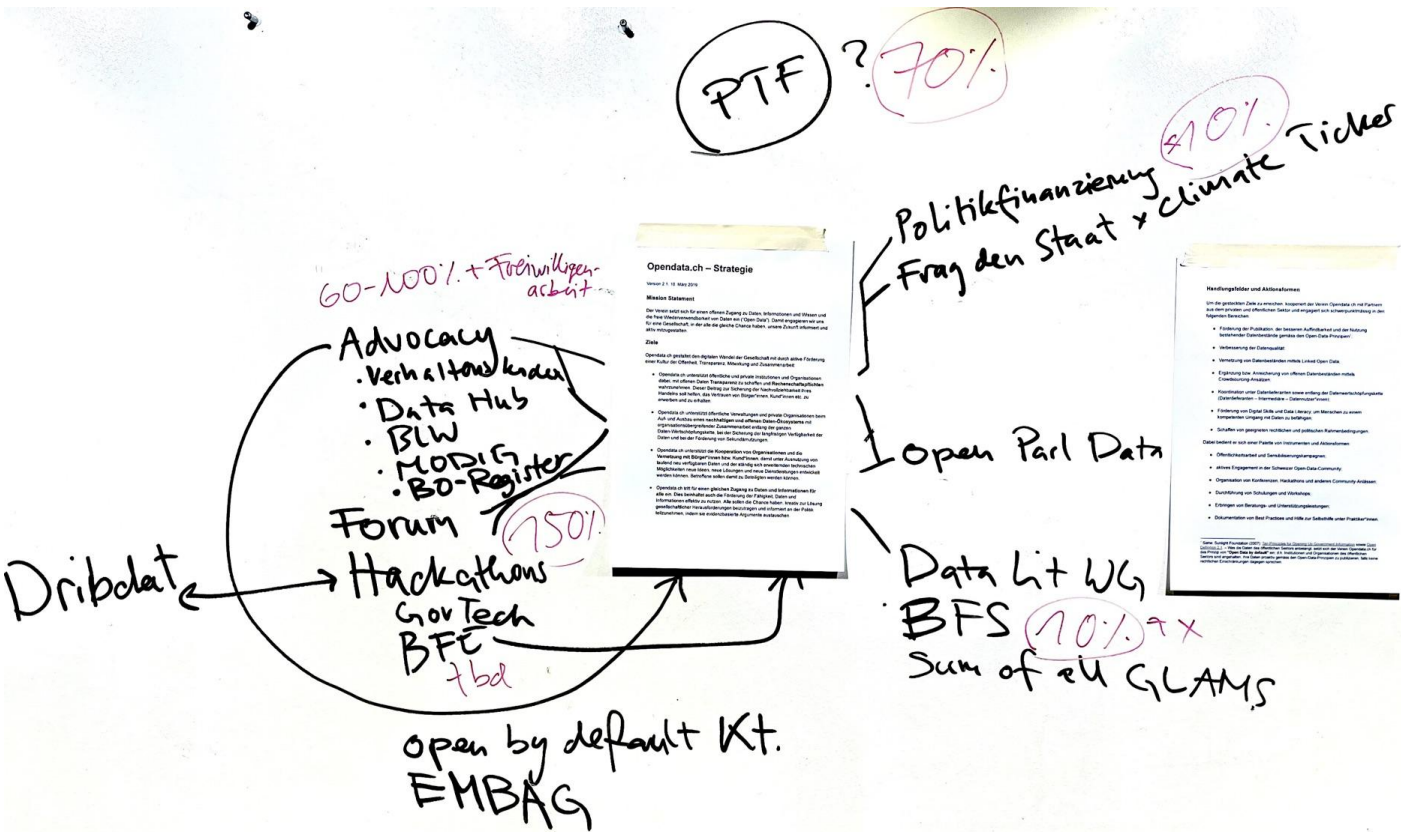 PTF ? 70%
x10%
Politikfinanzierung
Frag den Staat x Climate Ticker
60-100% + Freiwilligen-
arbeit
Advocacy
• Verhaltenskodex
• Data Hub
• BLW
• MODIG
• BO-Register
Forum
150%
Hackathons
GovTech
BFE
tbd
Dribdat
open by default Kt.
EMBAG
Opendata.ch – Strategie
Version 2.1, 18. März 2019
Mission Statement
Der Verein setzt sich für einen offenen Zugang zu Daten, Informationen und Wissen und
die freie Wiederverwendbarkeit von Daten ein ("Open Data"). Damit engagieren wir uns
für eine Gesellschaft, in der alle die gleiche Chance haben, unsere Zukunft informiert und
aktiv mitzugestalten.
Ziele
Opendata.ch gestaltet den digitalen Wandel der Gesellschaft mit durch aktive Förderung
einer Kultur der Offenheit, Transparenz, Mitwirkung und Zusammenarbeit:
• Opendata.ch unterstützt öffentliche und private Institutionen und Organisationen
dabei, mit offenen Daten Transparenz zu schaffen und Rechenschaftspflichten
wahrzunehmen. Dieser Beitrag zur Sicherung der Nachvollziehbarkeit ihres
Handelns soll helfen, das Vertrauen von Bürger*innen, Kund*innen etc. zu
erwerben und zu erhalten.
• Opendata.ch unterstützt öffentliche Verwaltungen und private Organisationen beim
Auf- und Ausbau eines nachhaltigen und offenen Daten-Ökosystems mit
organisationsübergreifender Zusammenarbeit entlang der ganzen
Daten-Wertschöpfungskette, bei der Sicherung der langfristigen Verfügbarkeit der
Daten und bei der Förderung von Sekundärnutzungen.
• Opendata.ch unterstützt die Kooperation von Organisationen und die
Vernetzung mit Bürger*innen bzw. Kund*innen, damit unter Ausnutzung von
laufend neu verfügbaren Daten und der ständig sich erweiternden technischen
Möglichkeiten neue Ideen, neue Lösungen und neue Dienstleistungen entwickelt
werden können. Betroffene sollen damit zu Beteiligten werden können.
• Opendata.ch tritt für einen gleichen Zugang zu Daten und Informationen für
alle ein. Dies beinhaltet auch die Förderung der Fähigkeit, Daten und
Informationen effektiv zu nutzen. Alle sollen die Chance haben, kreativ zur Lösung
gesellschaftlicher Herausforderungen beizutragen und informiert an der Politik
teilzunehmen, indem sie evidenzbasierte Argumente austauschen.
Open Parl Data
Data Lit WG
BFS 10% + x
Sum of all GLAMS
Handlungsfelder und Aktionsformen
Um die gesteckten Ziele zu erreichen, kooperiert der Verein Opendata.ch mit Partnern
aus dem privaten und öffentlichen Sektor und engagiert sich schwerpunktmässig in den
folgenden Bereichen:
• Förderung der Publikation, der besseren Auffindbarkeit und der Nutzung
bestehender Datenbestände gemäss den Open-Data-Prinzipien
• Verbesserung der Datenqualität
• Vernetzung von Datenbeständen mittels Linked Open Data
• Ergänzung bzw. Anreicherung von offenen Datenbeständen mittels
Crowdsourcing-Ansätzen
• Koordination unter Datenlieferanten sowie entlang der Datenwertschöpfungskette
(Datenlieferanten – Intermediäre – Datennutzer*innen)
• Förderung von Digital Skills und Data Literacy, um Menschen zu einem
kompetenten Umgang mit Daten zu befähigen.
• Schaffen von geeigneten rechtlichen und politischen Rahmenbedingungen.
Dabei bedient er sich einer Palette von Instrumenten und Aktionsformen:
• Öffentlichkeitsarbeit und Sensibilisierungskampagnen;
• aktives Engagement in der Schweizer Open-Data-Community;
• Organisation von Konferenzen, Hackathons und anderen Community-Anlässen;
• Durchführung von Schulungen und Workshops;
• Erbringen von Beratungs- und Unterstützungsleistungen;
• Dokumentation von Best Practices und Hilfe zur Selbsthilfe unter Praktiker*innen.